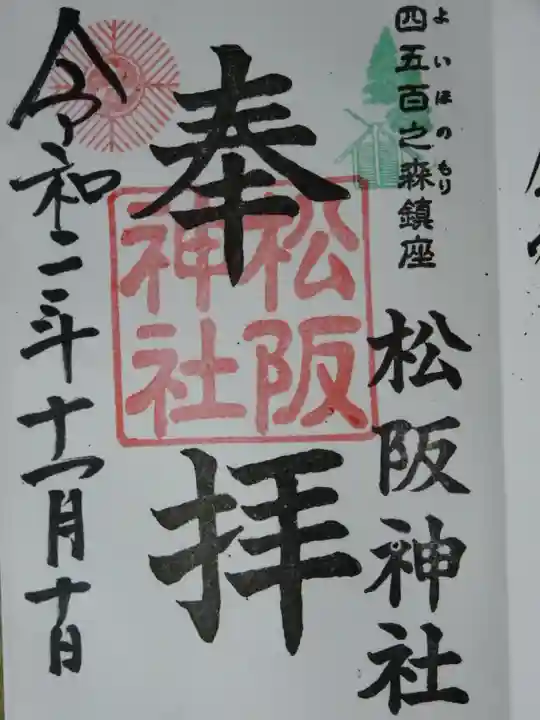 四五百之森鎮座
よいほのもり
松阪神社
奉拝
松阪神社
令和二年十一月十日